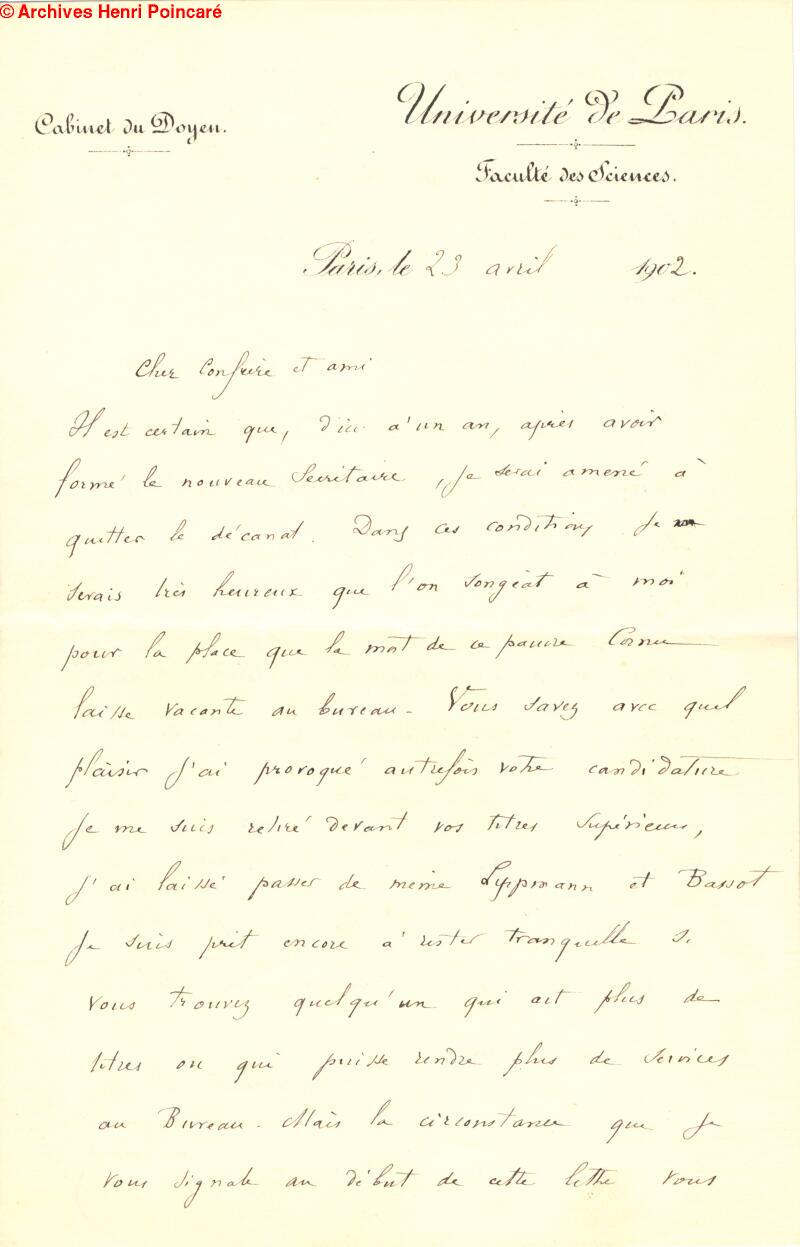 © Archives Henri Poincaré
Cabinet du Doyen.
Université de Paris.
Faculté des Sciences.
Paris, le 23 avril 1902.
Cher Confrère et ami
Il est certain que, d'ici à un an, après avoir
formé le nouveau Secrétaire, je serai amené à
quitter le décanat. Dans ces conditions je
serais très heureux que l'on songeât à moi
pour la place que la mort de ce pauvre Cornu
laisse vacante au bureau. Vous savez avec quel
plaisir j'ai provoqué autrefois votre candidature
Je me suis retiré devant vos titres supérieurs,
j'ai laissé passer de même Lippmann et Bassot
Je suis prêt encore à rester tranquille si
vous trouvez quelqu'un qui ait plus de
titres ou qui puisse rendre plus de services
au Bureau. Mais la circonstance que je
vous signale au début de cette lettre vous